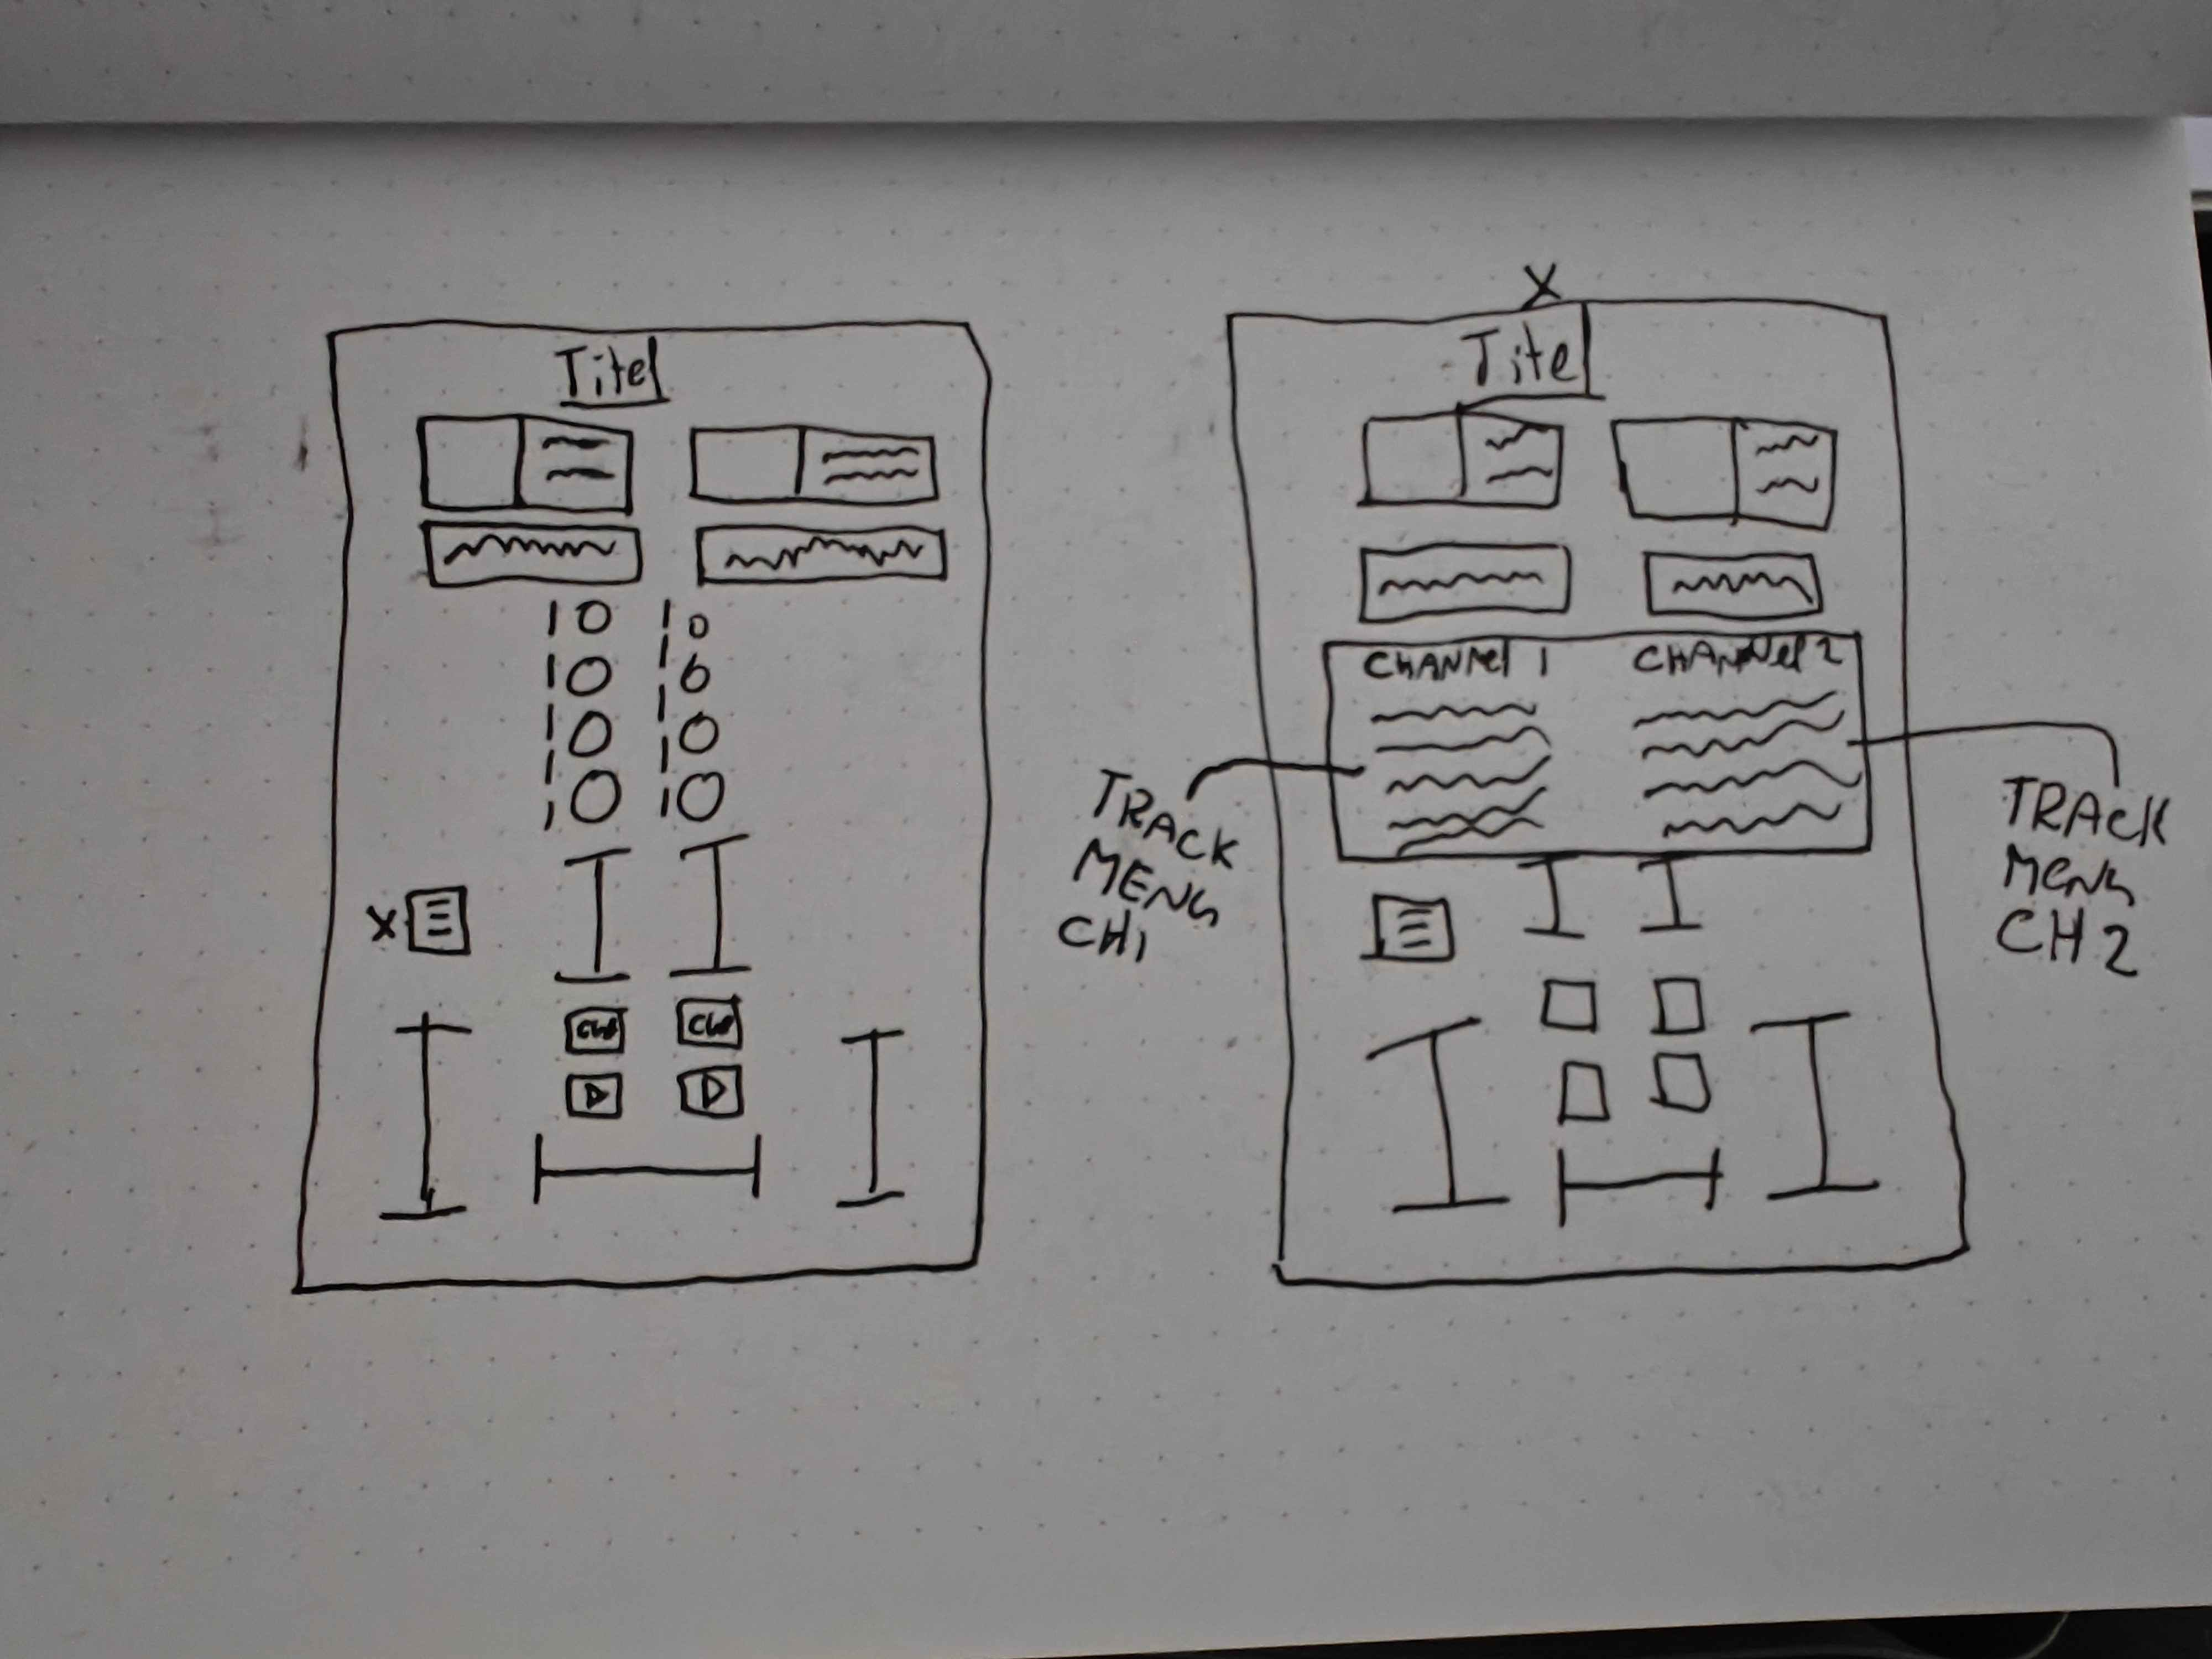 Titel
CUE
CUE
X
X
Titel
CHANNEl 1
CHANNel 2
TRACK
MENU
CH1
TRACK
MENU
CH2